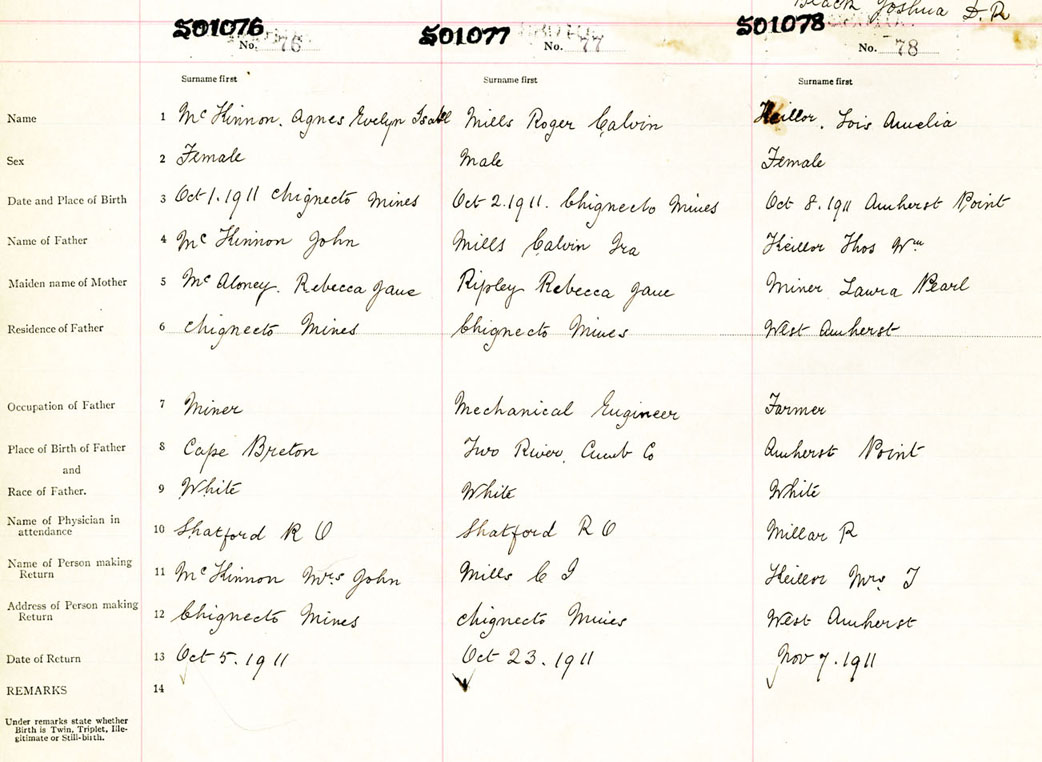 Black Joshua D. R
S01076 S01077 S01078
No. 76 No. 77 No. 78
Surname first Surname first Surname first
Name 1 Mc Kinnon. Agnes Evelyn Isabell Mills Roger Calvin Keillor, Lois Amelia
Sex 2 Female Male Female
Date and Place of Birth 3 Oct 1. 1911 Chignecto Mines Oct 2. 1911. Chignecto Mines Oct 8. 1911 Amherst Point
Name of Father 4 Mc Kinnon John Mills Calvin Ira Keillor Thos Wm
Maiden name of Mother 5 Mc Aloney. Rebecca Jane Ripley Rebecca Jane Miner Laura Pearl
Residence of Father 6 Chignecto Mines Chignecto Mines West Amherst
Occupation of Father 7 Miner Mechanical Engineer Farmer
Place of Birth of Father 8 Cape Breton Two River, Cumb Co Amherst Point
and
Race of Father. 9 White White White
Name of Physician in
attendance 10 Shatford R O Shatford R O Millar R
Name of Person making
Return 11 Mc Kinnon Mrs John Mills C I Keillor Mrs T
Address of Person making
Return 12 Chignecto Mines Chignecto Mines West Amherst
Date of Return 13 Oct 5. 1911 Oct 23. 1911 Nov 7. 1911
REMARKS 14
Under remarks state whether
Birth is Twin, Triplet, Ille-
gitimate or Still-birth.